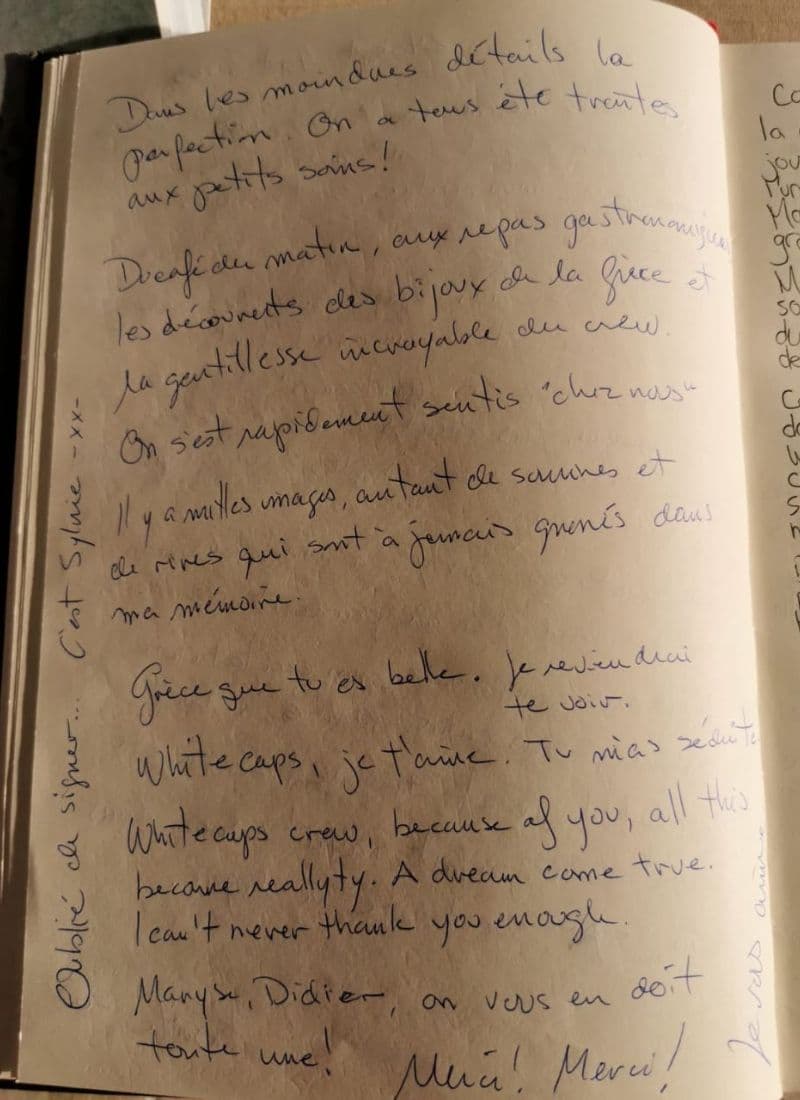 Dans les moindres détails la
perfection. On a tous été traités
aux petits soins!
Du café du matin, aux repas gastronomiques
les découverts des bijoux de la Grèce et
la gentillesse incroyable du crew.
On s'est rapidement sentis "chez nous"
Il y a milles images, autant de sourires et
de rires qui sont à jamais gravés dans
ma mémoire.
Grèce que tu es belle. Je reviendrai
te voir.
White caps, je t'aime. Tu m'as séduite
Whitecaps crew, because of you, all this
became reallyty. A dream come true.
I can't never thank you enough.
Maryse, Didier, on vous en doit
toute une!
Merci! Merci!
Oublié de signer... C'est Sylvie -xx-
Je vous aime
Co
la